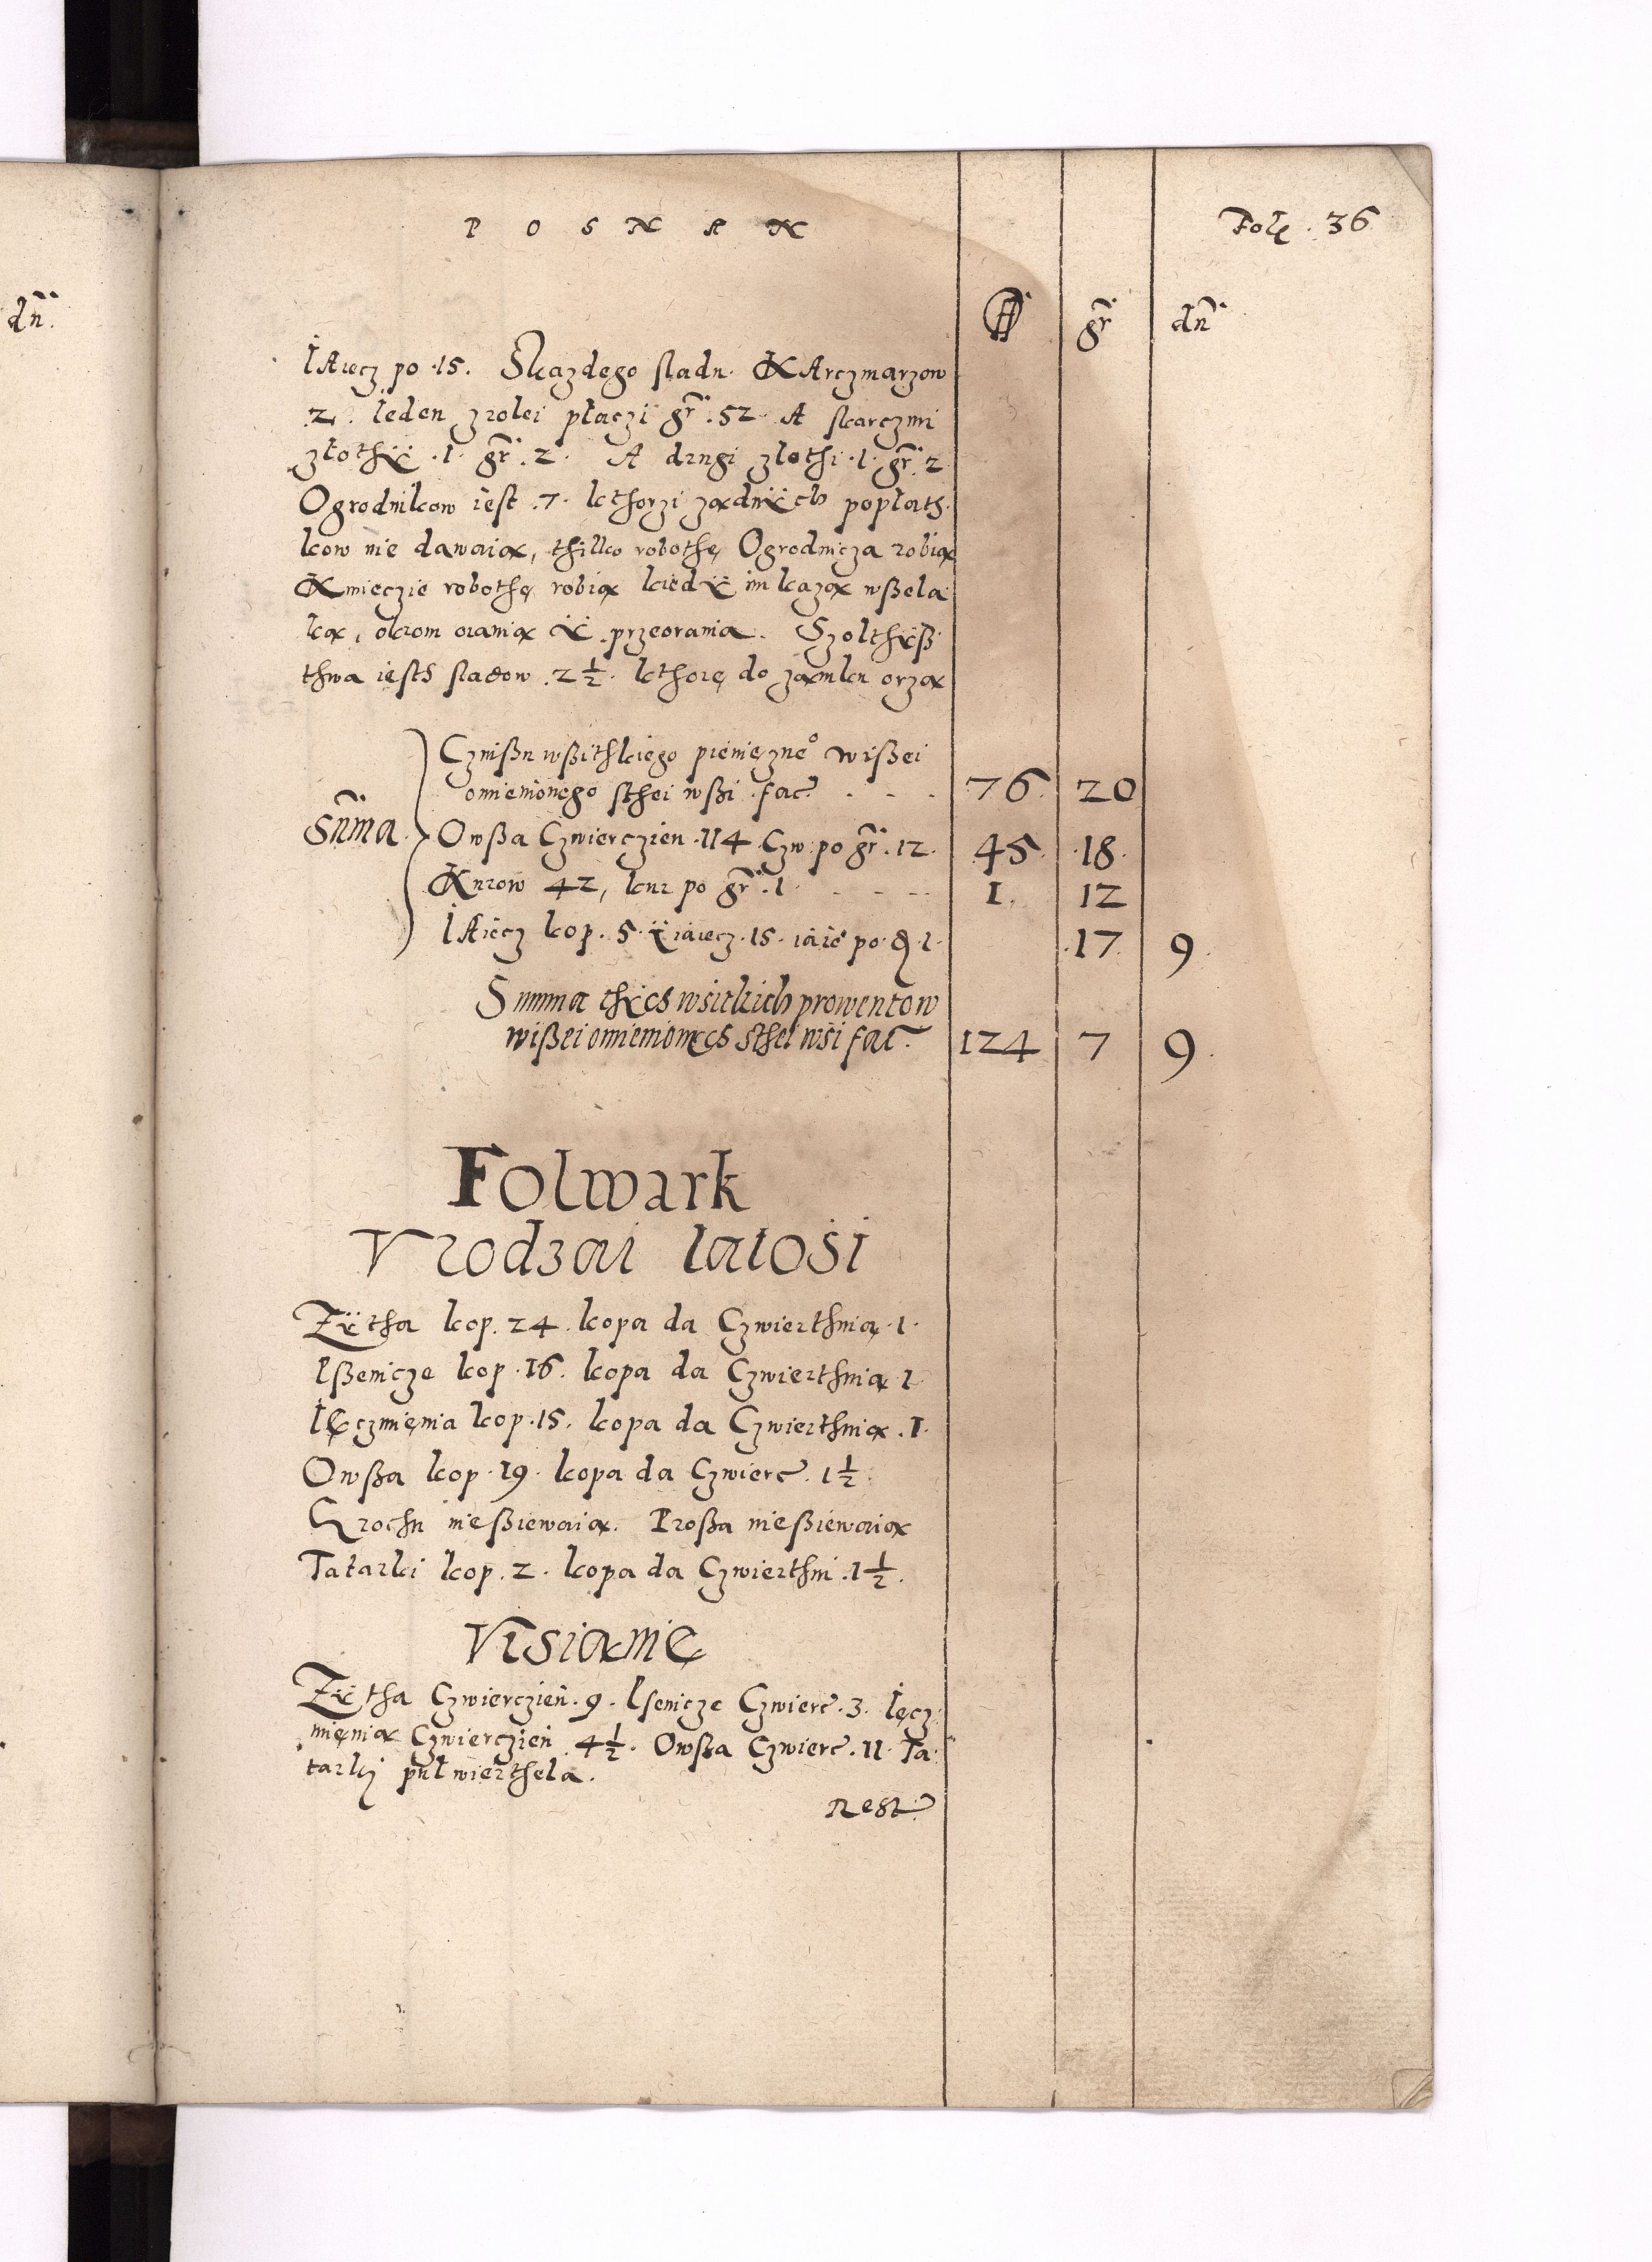 dñ.
P O S N A N
Fol. 36
fl gr̃ dñ
IAiecz po .15. Skazdego sladu. KArczmarzow
.2. ieden zrolei płaczi gr̃. 52. A skarczmi
złothÿ .1. gr̃ .2. A drugi złothi .1. gr̃ 2
Ogrodnikow iest .7. kthorzi zadnÿch popłath.
kow nie dawaią, thilko robothę Ogrodnicza robią
Kmieczie robothę robią kiedÿ im kazą wßela
ką, okrom orania ÿ przeorania. Szolthÿß
thwa iesth sladow .2½. kthorę do zamku orzą
Sum̃a
Czinßu wßithkiego pieniężne° wißei
omienionego sthei wßi fac̃ . - - . 76. 20
Owßa Czwierczien .114 Czw. po gr̃ .12. 45. .18.
Kurow 42, kur po gr̃ .1. . - - .. 1. 12
IAiecz kop. 5. ÿ iaiecz .15. iaie po ₰ 1. .17. 9.
Summa thÿch wsitkich prowentow
wißei omienionych sthei wsi fac̃. 124 7 9.
Folwark
Vrodzai latosi
Zÿtha kop. 24. kopa da Czwierthnią .1.
Pßenicze kop .16. kopa da Czwierthnią .1
IĘczmięnia kop .15. kopa da Czwierthnią .1.
Owßa kop .19. kopa da Czwierc̃ . 1½.
Grochu nießiewaią. Proßa nießiewaią
Tatarki kop .2. kopa da Czwierthni .1½.
Visianię
Zÿtha Czwierczień .9. Psenicze Czwierc̃ .3. Ięcz
mięnia Czwierczień 4½. Owßa Czwierc̃ .11. Ta.
tarkj puł wierthela.
Rest